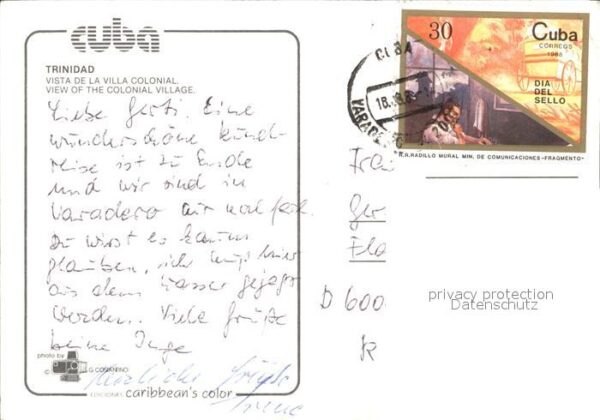 cuba
TRINIDAD
VISTA DE LA VILLA COLONIAL.
VIEW OF THE COLONIAL VILLAGE.
Liebe Gerti. Eine
wunderschöne Rund-
reise ist zu Ende
und wir sind in
Varadero
Du wirst es kaum
glauben, ich muß hier
aus dem Wasser gejagt
werden. Viele Grüße
Deine Inge
Herzliche Grüße
photo by
© G. COSANINO
EDICIONES caribbean's color
30 Cuba
CORREOS
1988
DIA
DEL
SELLO
R.R.RADILLO MURAL MIN. DE COMUNICACIONES «FRAGMENTO»
CUBA
VARADERO
Frau
Ger
D 600
privacy protection
Datenschutz